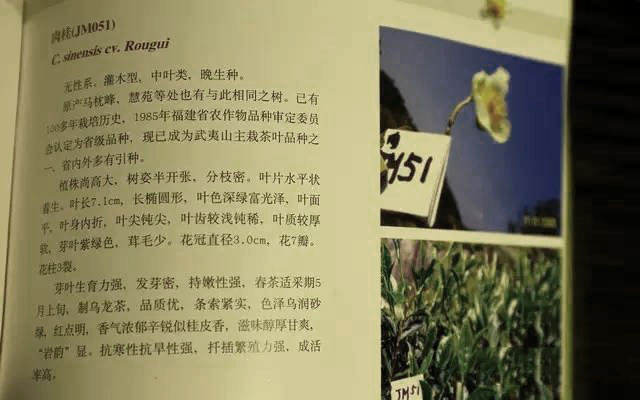 肉桂(JM051)
C. sinensis cv. Rougui
无性系。灌木型，中叶类，晚生种。
原产马枕峰，慧苑等处也有与此相同之树。已有
100多年栽培历史，1985年福建省农作物品种审定委员
会认定为省级品种，现已成为武夷山主栽茶叶品种之
一，省内外多有引种。
植株尚高大，树姿半开张，分枝密。叶片水平状
着生。叶长7.1cm，长椭圆形，叶色深绿富光泽，叶面
平，叶身内折，叶尖钝尖，叶齿较浅钝稀，叶质较厚
软，芽叶紫绿色，茸毛少。花冠直径3.0cm，花7瓣。
花柱3裂。
芽叶生育力强，发芽密，持嫩性强，春茶适采期5
月上旬，制乌龙茶，品质优，条索紧实，色泽乌润砂
绿，红点明，香气浓郁辛锐似桂皮香，滋味醇厚甘爽，
“岩韵”显。抗寒性抗旱性强，扦插繁殖力强，成活
率高。
JM51
JM51